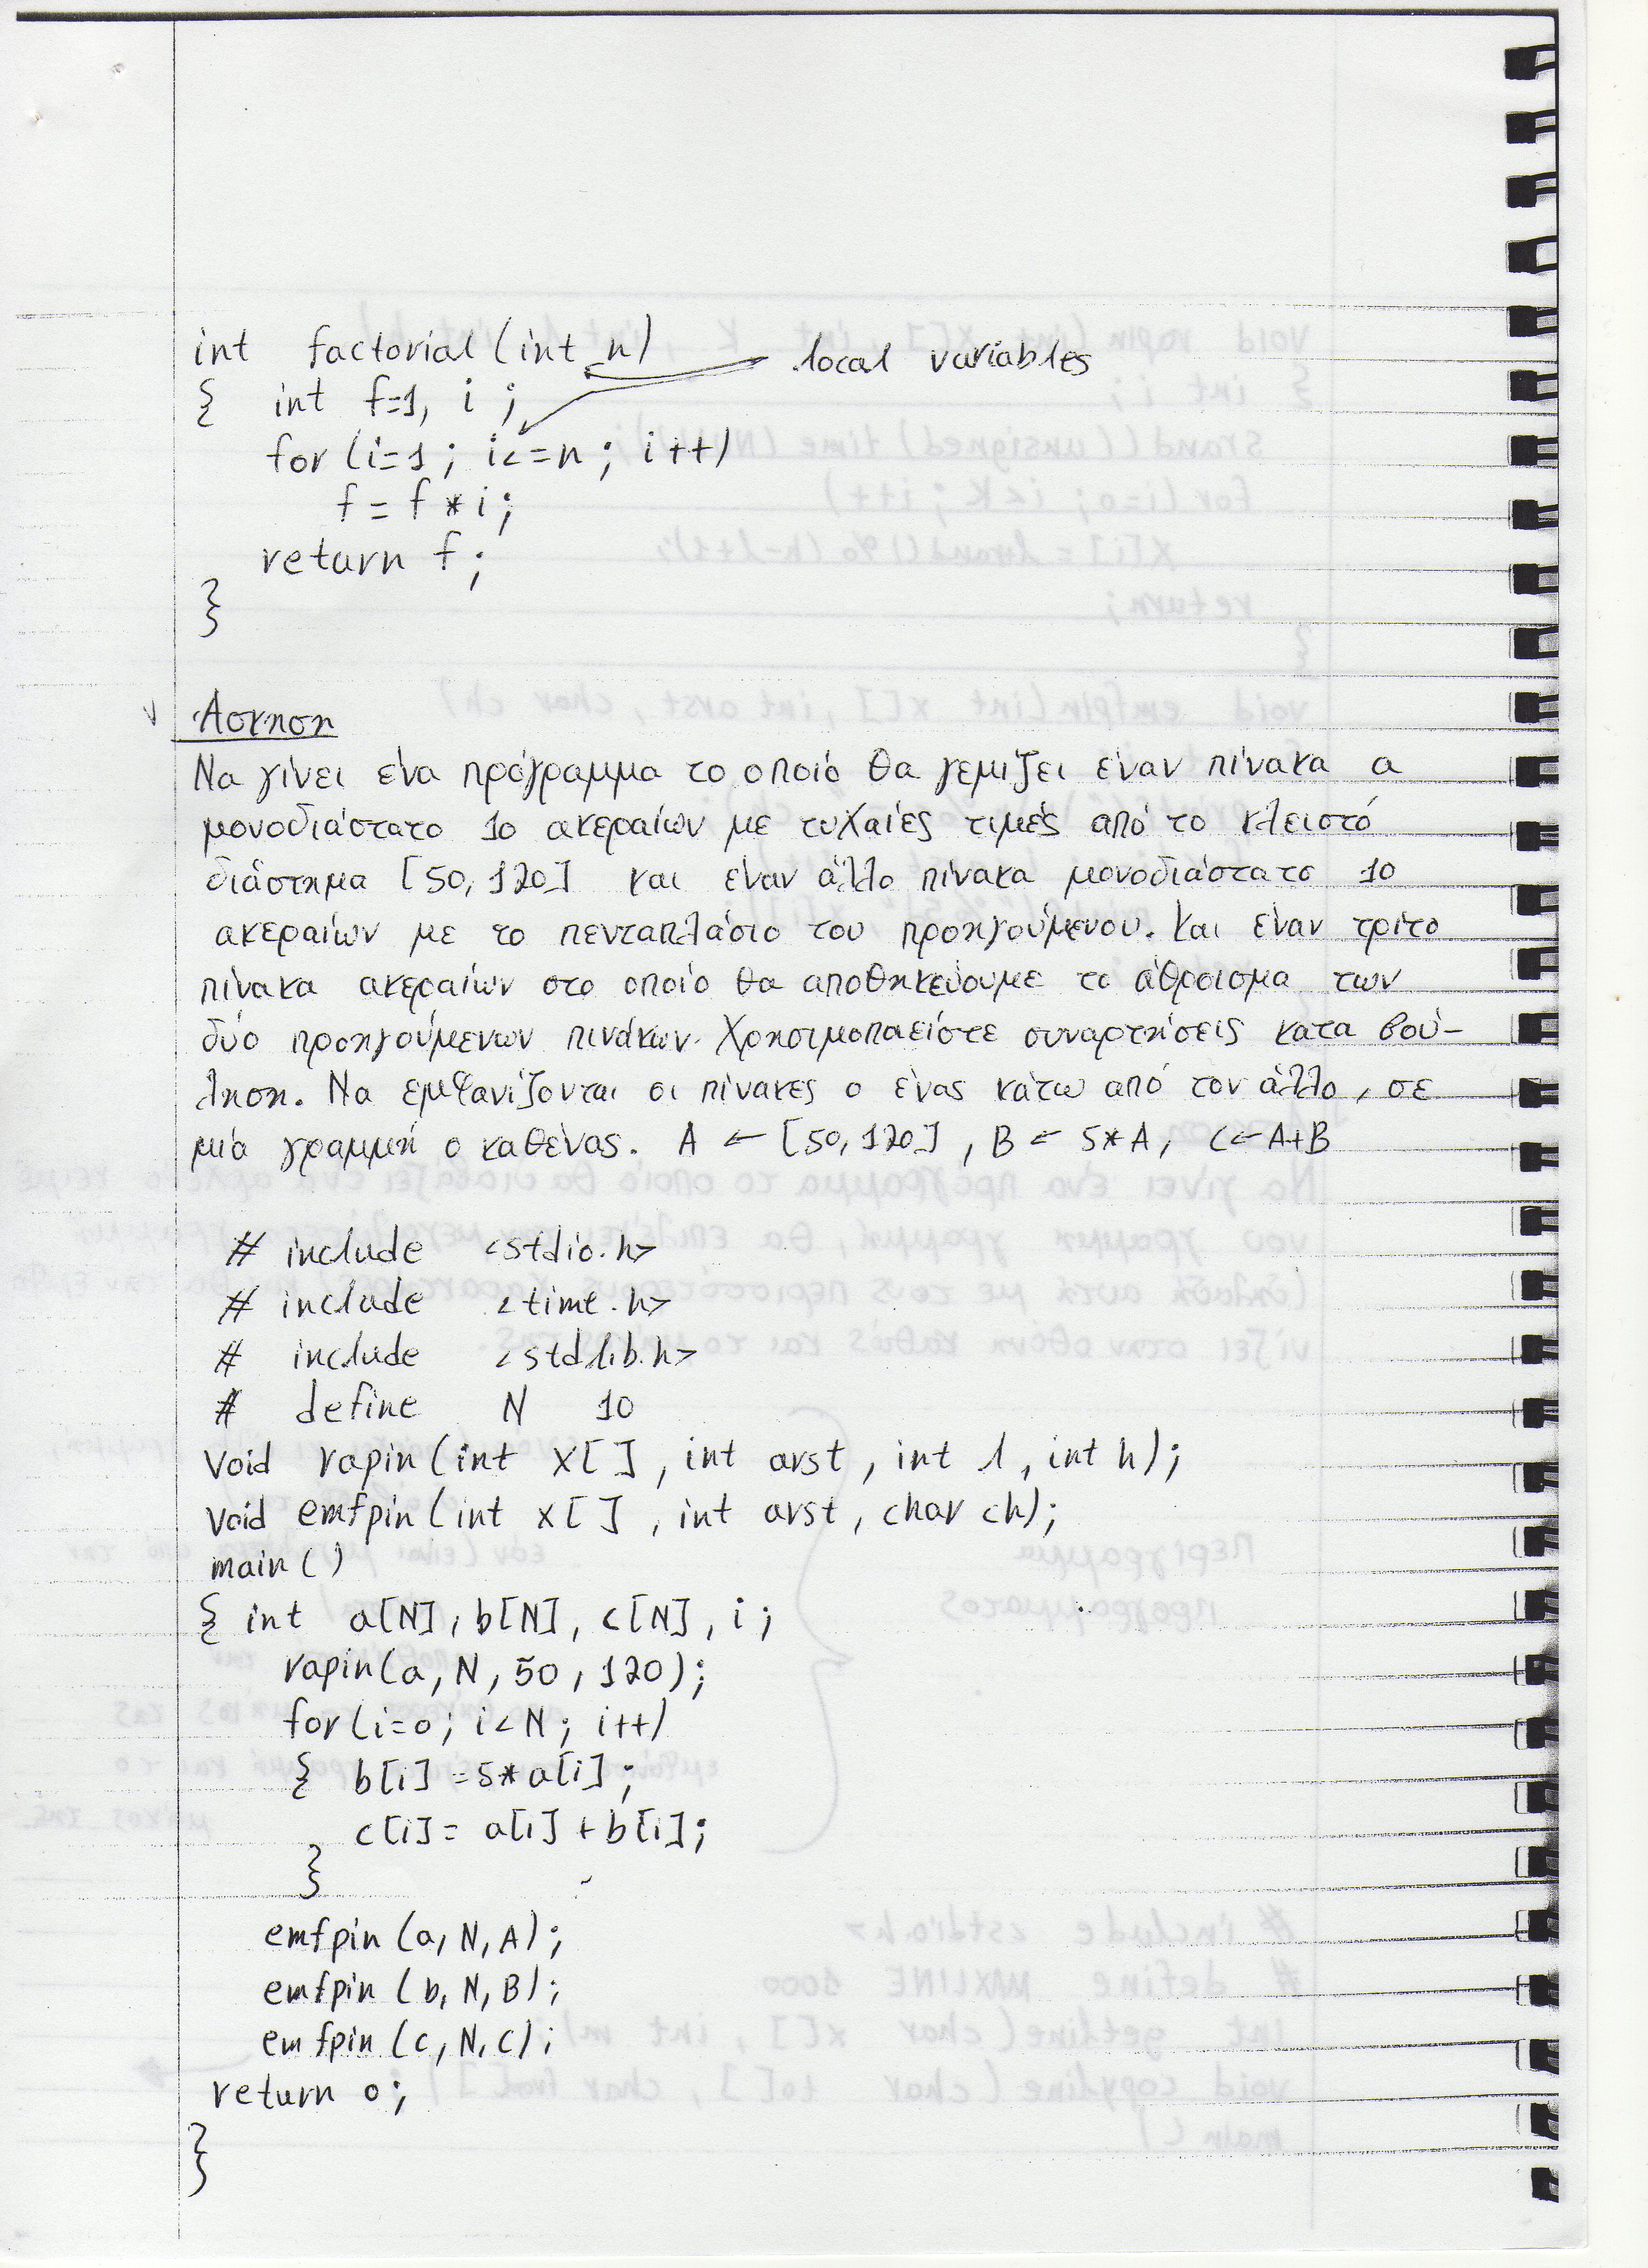 int factorial(int n)
local variables
{ int f=1, i ;
for (i=1 ; i<=n ; i++)
f = f * i ;
return f ;
}
Άσκηση
Να γίνει ένα πρόγραμμα το οποίο θα γεμίζει έναν πίνακα a
μονοδιάστατο 10 ακεραίων με τυχαίες τιμές από το κλειστό
διάστημα [50, 120] και έναν άλλο πίνακα μονοδιάστατο 10
ακεραίων με το πενταπλάσιο του προηγούμενου. Και έναν τρίτο
πίνακα ακεραίων στο οποίο θα αποθηκεύουμε το άθροισμα των
δύο προηγούμενων πινάκων. Χρησιμοποιείστε συναρτήσεις κατα βού-
ληση. Να εμφανίζονται οι πίνακες ο ένας κάτω από τον άλλο, σε
μία γραμμή ο καθένας. A ← [50, 120] , B ← 5*A, C ← A+B
# include <stdio.h>
# include <time.h>
# include <stdlib.h>
# define N 10
void rapin(int x[ ] , int arst , int l , int h) ;
void emfpin(int x[ ] , int arst , char ch) ;
main ( )
{ int a[N] , b[N] , c[N] , i ;
rapin(a, N, 50, 120) ;
for (i=0 ; i<N ; i++)
{ b[i] = 5*a[i] ;
c[i] = a[i] + b[i] ;
}
emfpin (a, N, A) ;
emfpin (b, N, B) ;
emfpin (c, N, C) ;
return 0 ;
}